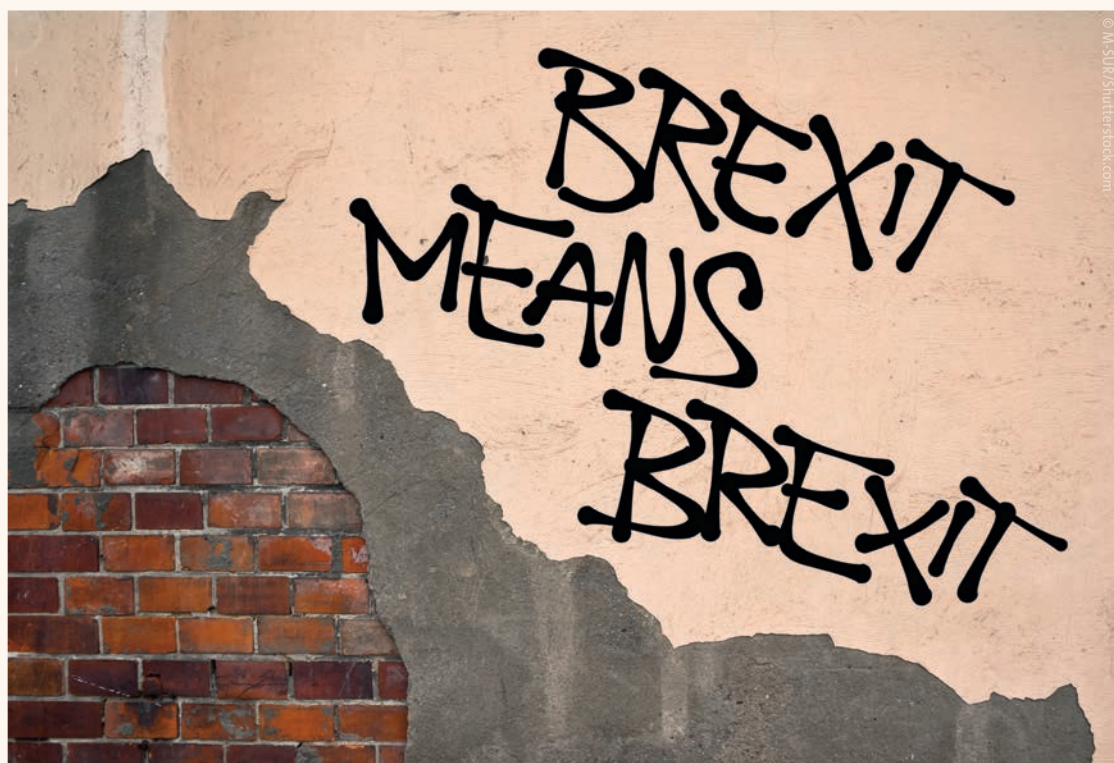 BREXIT
MEANS
BREXIT
© M-SUR/Shutterstock.com